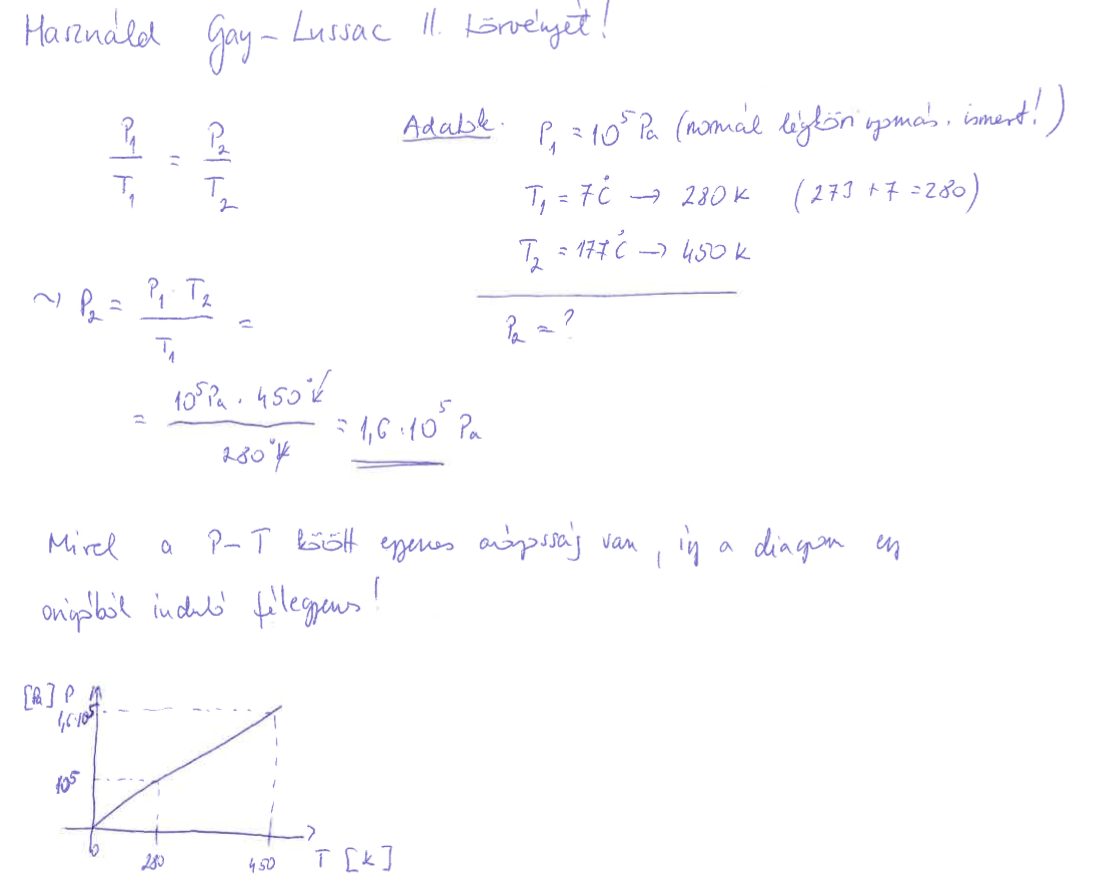 Használd Gay-Lussac II. törvényét!
Adatok: P₁ = 10⁵ Pa (normál légköri nyomás, ismert!)
P₁/T₁ = P₂/T₂
T₁ = 7°C → 280 K (273 + 7 = 280)
T₂ = 177°C → 450 K
~> P₂ = P₁ · T₂ / T₁ =
P₂ = ?
= 10⁵ Pa · 450°K / 280°K = 1,6 · 10⁵ Pa
Mivel a P-T között egyenes arányosság van, így a diagram egy
origóból induló félegyenes!
[Pa] P
1,6·10⁵
10⁵
0 280 450 T [K]